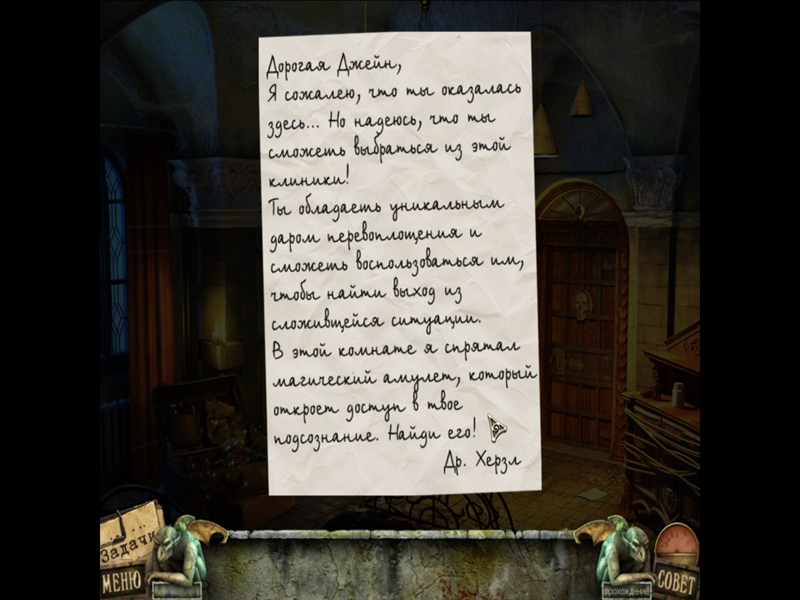 Дорогая Джейн,
Я сожалею, что ты оказалась
здесь... Но надеюсь, что ты
сможешь выбраться из этой
клиники!
Ты обладаешь уникальным
даром перевоплощения и
сможешь воспользоваться им,
чтобы найти выход из
сложившейся ситуации.
В этой комнате я спрятал
магический амулет, который
откроет доступ в твое
подсознание. Найди его!
Др. Херзл
Задачи
МЕНЮ
прохождение
СОВЕТ